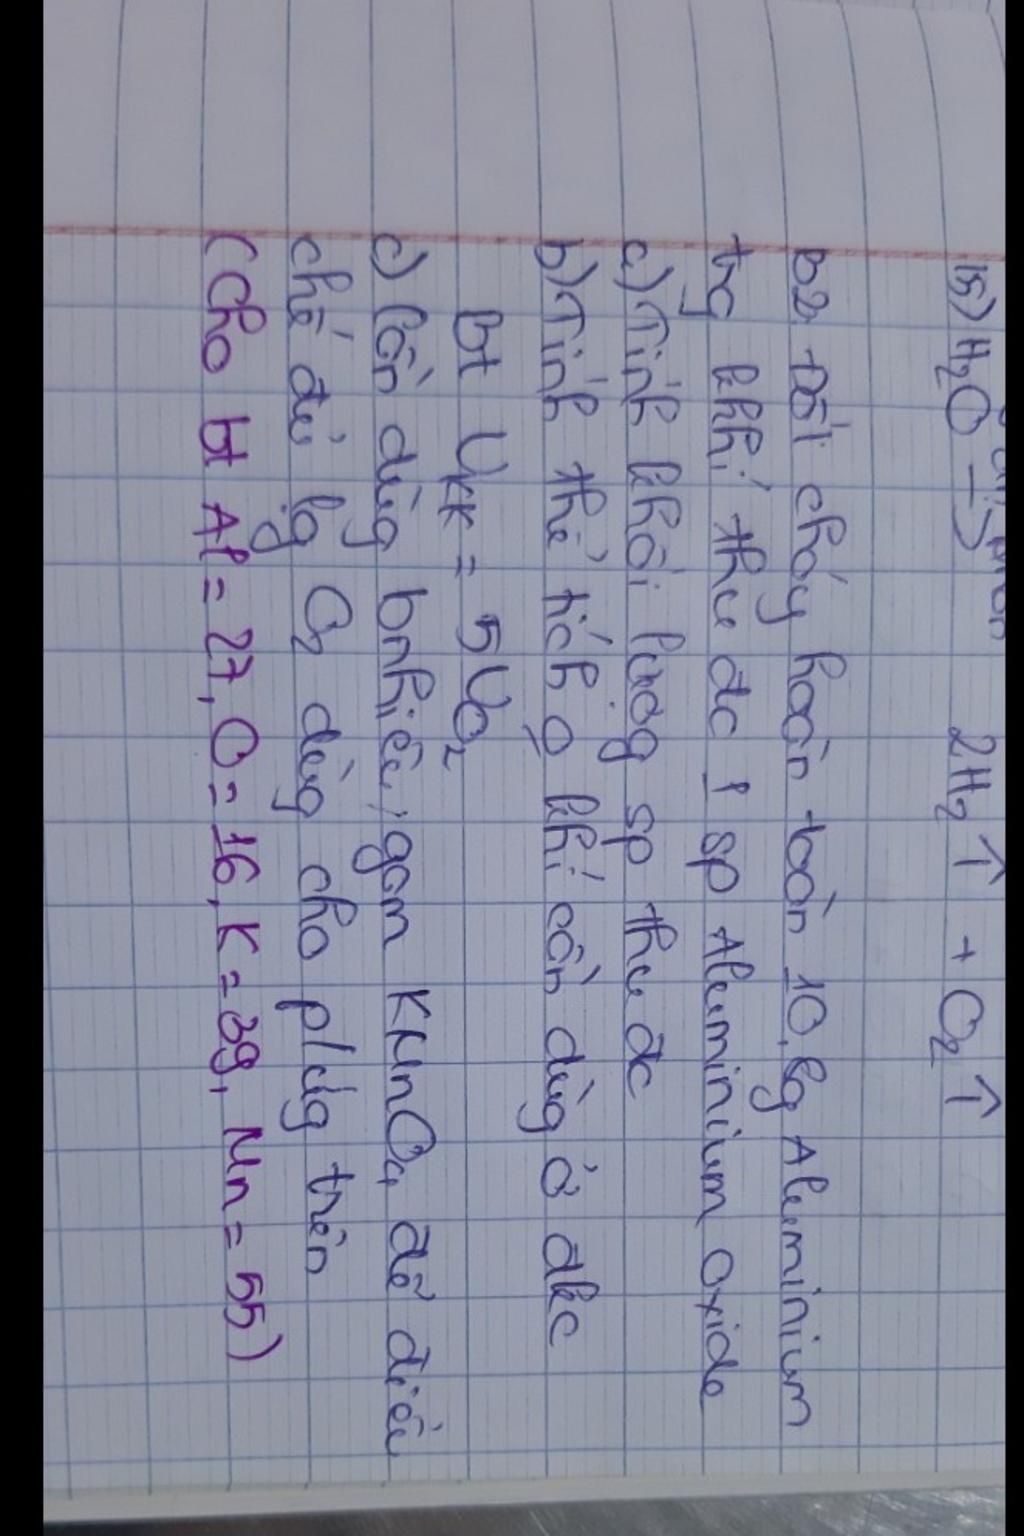 15) H₂O → 2H₂↑ + O₂↑
B2, Đốt cháy hoàn toàn 10,8g Aluminium
trg khhí thu đc 1 sp Aluminium oxide
a) Tính khối lượg sp thu đc
b) Tính thể tích o khí cần dùg ở đkc
bt Vкк = 5VO₂
c) Cần dùg bnhiêu gam KMnO₄ để điều
chế đủ lg O₂ dùg cho p/ứg trên
(Cho bt Al = 27, O = 16, K = 39, Mn = 55)